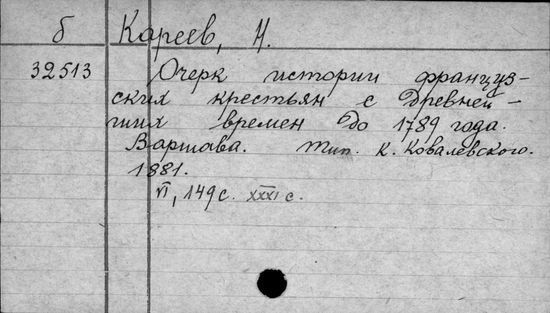 б Кареев, Н.
32513 Очерк истории француз-
ских крестьян с древней-
ших времен до 1789 года.
Варшава. тип. К. Ковалевского.
1881.
VI, 149 с. XXXI с.